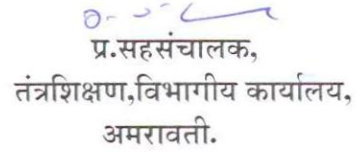 प्र.सहसंचालक,
तंत्रशिक्षण,विभागीय कार्यालय,
अमरावती.